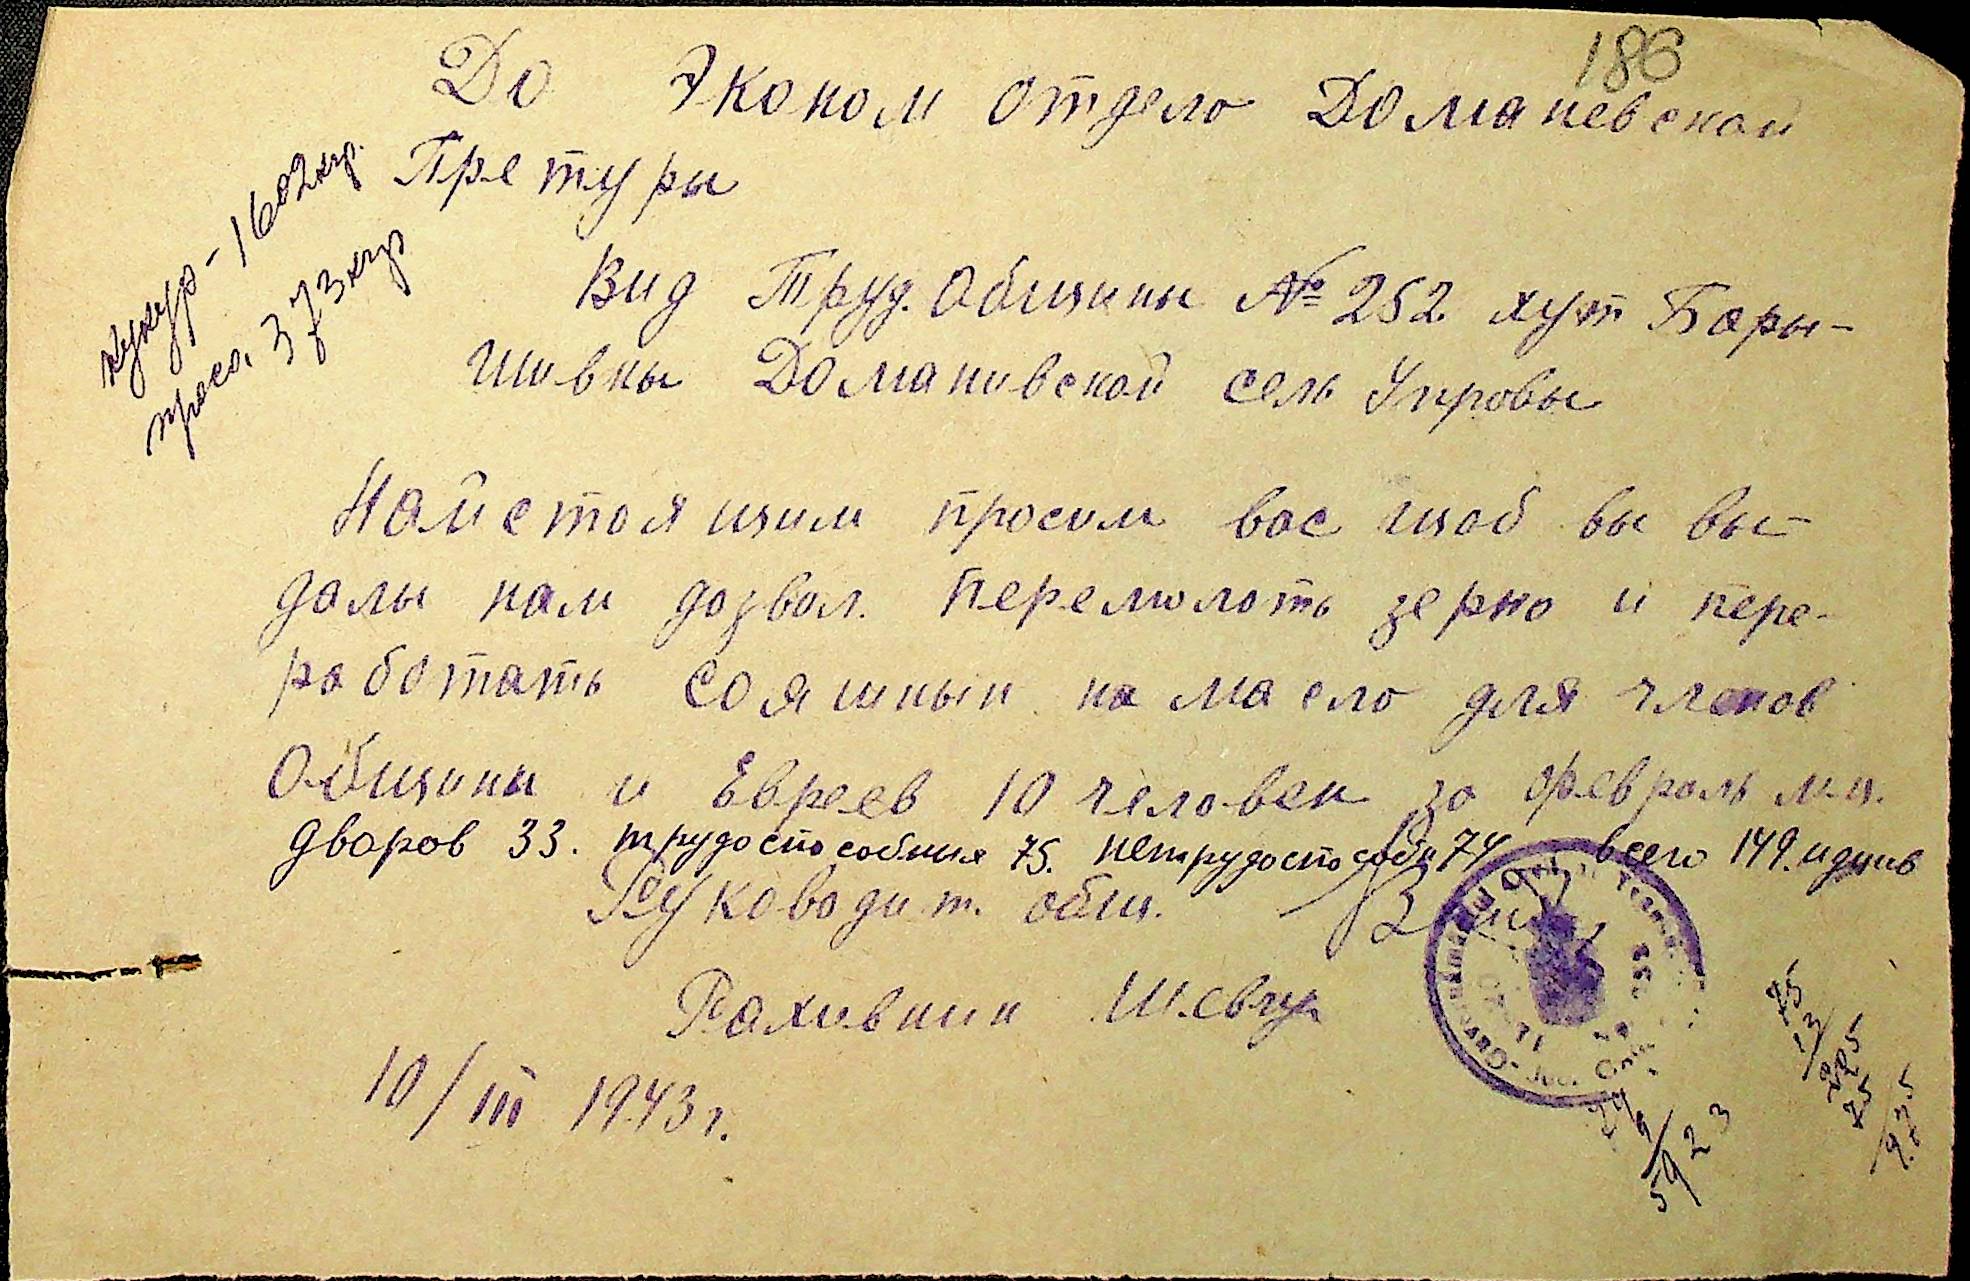 186
До Эконом отдело Доманевской
Претуры
кукур - 1602 кгр.
просо. 373 кгр
Вид Труд. Общины № 252 хут Бары-
шивкы Доманивской сель Упровы
Найстоящим просим вас щоб вы вы-
далы нам дозвол. перемолоть зерно и пере-
работать сояшнык на масло для членов
Общины и Евреев 10 человек за февраль м-ц.
дворов 33. трудоспособния 75. нетрудоспособн 74 всего 149. идцив
Руководит. общ.
Рахивник Шевчук
10/III 1943 г.
75
13
225
75
975
74
592